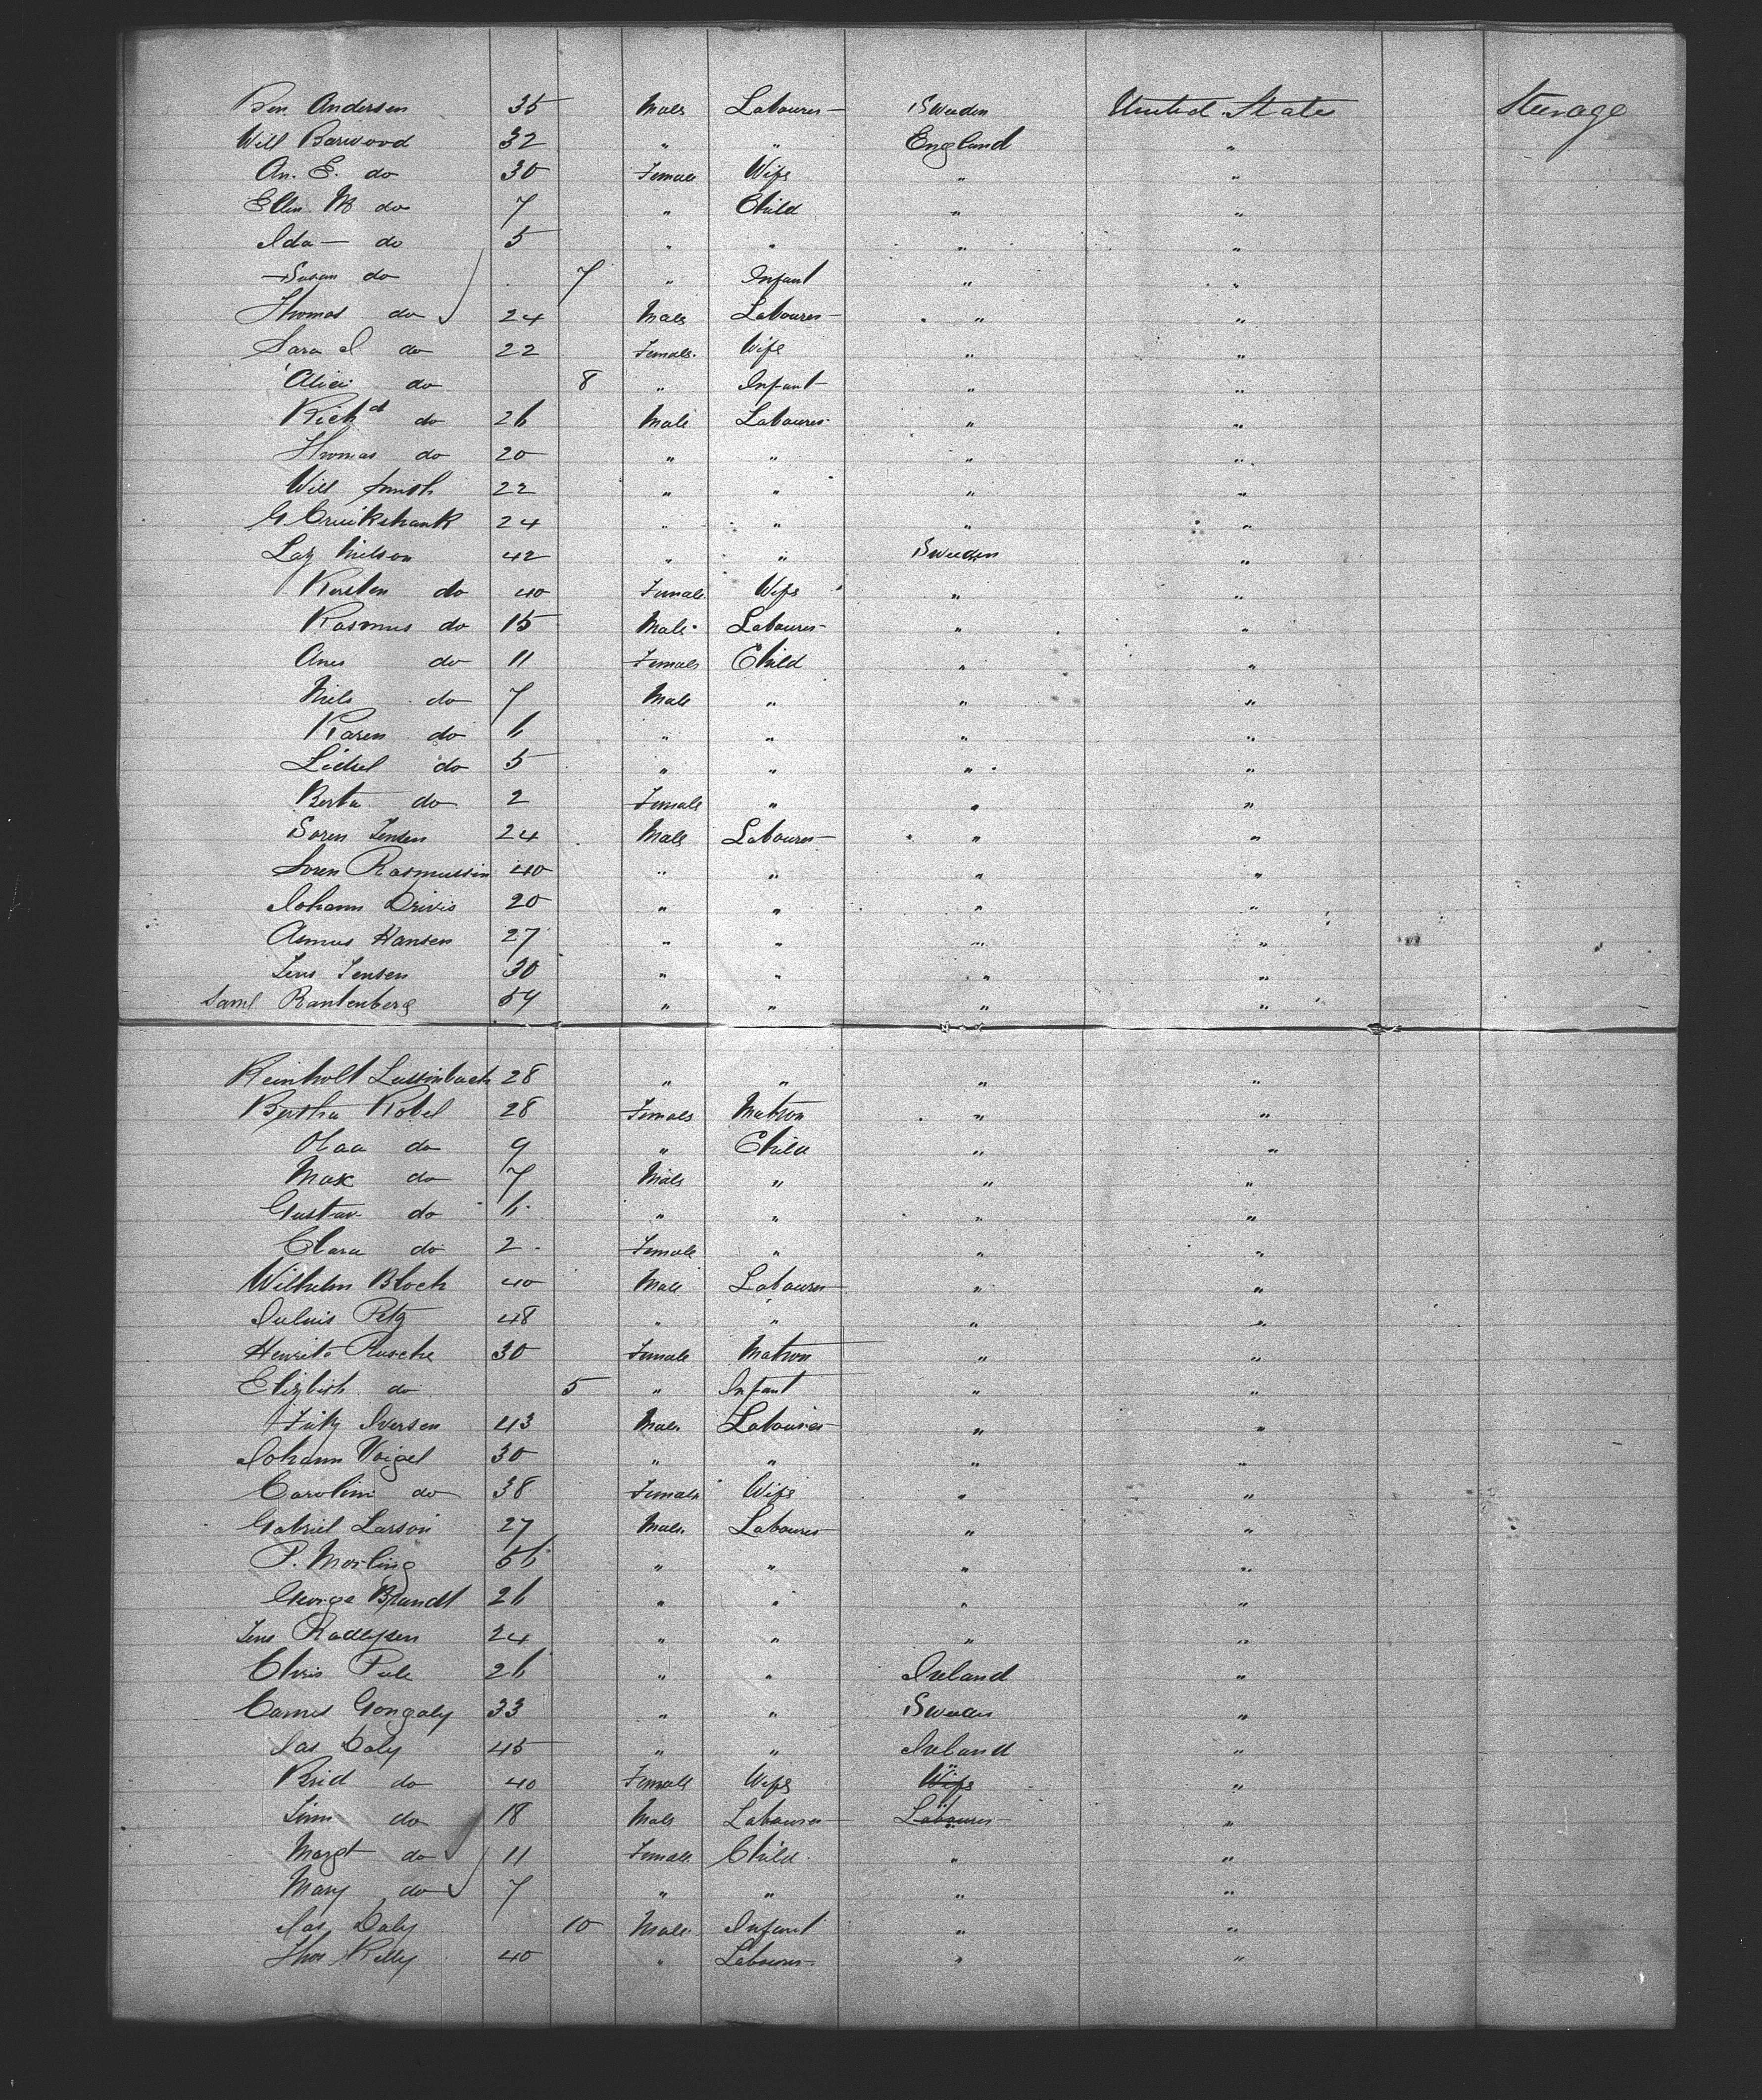 Ben Andersen 35 Male Labourer Sweden United States Steerage
Will Barwood 32 " " England "
An. E. do 30 Female Wife " "
Ellen M do 7 " Child " "
Ida do 5 " " " "
Susan do 7 " Infant " "
Thomas do 24 Male Labourer " "
Sara J do 22 Female Wife " "
Alice do 8 " Infant " "
Richd do 26 Male Labourer " "
Thomas do 20 " " " "
Will Smith 22 " " " "
G. Cruikshank 24 " " " "
Nielson 42 " " Sweden "
Kersten do 40 Female Wife " "
Rasmus do 15 Male Labourer " "
Anes do 11 Female Child " "
Niels do 7 Male " " "
Karen do 6 " " " "
do 5 " " " "
Berta do 2 Female " " "
Soren Jensen 24 Male Labourer " "
Soren Rasmussin 40 " " " "
Johann 20 " " " "
Asmus Hansen 27 " " " "
Jens Jensen 30 " " " "
Saml Rantenberg 54 " " " "
Reinholt 28 " " " "
Bertha Kobel 28 Female Matron " "
do 9 " Child " "
Max do 7 Male " " "
Gustav do 6 " " " "
Clara do 2 Female " " "
Wilhelm Block 40 Male Labourer " "
Petz 48 " " " "
30 Female Matron " "
do 5 " Infant " "
Fritz Iversen 43 Male Labourer " "
Johann Voigel 30 " " " "
Carolin do 38 Female Wife " "
Gabriel Larson 27 Male Labourer " "
P. Morling 56 " " " "
George Brandt 26 " " " "
Jens 24 " " " "
Chris 26 " " Ireland "
33 " " Sweden "
Jas Daly 45 " " Ireland "
Brid do 40 Female Wife Wife " "
do 18 Male Labourer Labourer " "
Margt do 11 Female Child " "
Mary do 7 " " " "
Jas Daly 10 Male Infant " "
Thos Kelly 40 " Labourer " "